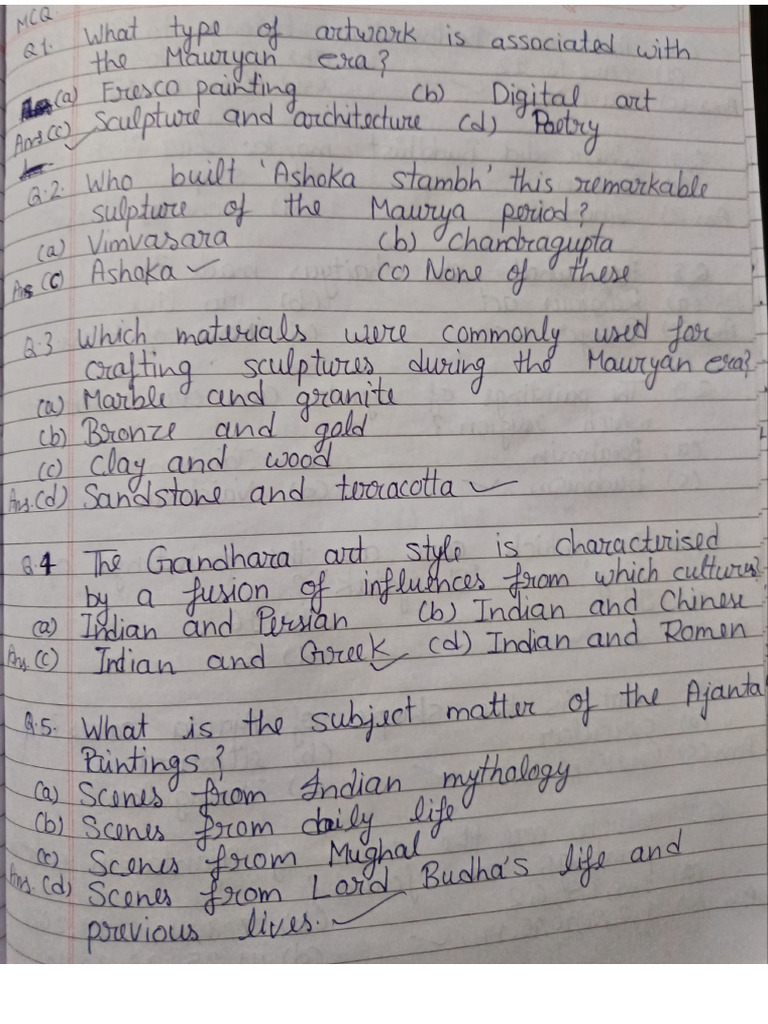 MCQ
Q1. What type of artwark is associated with
the Mauryan era?
(a) Fresco painting (b) Digital art
Ans (c) Sculpture and architecture (d) Poetry
Q.2. Who built 'Ashoka stambh' this remarkable
sulpture of the Maurya period?
(a) Vimvasara (b) Chandragupta
Ans (c) Ashoka ✓ (c) None of these
Q.3 Which materials were commonly used for
crafting sculptures during the Mauryan era?
(a) Marble and granite
(b) Bronze and gold
(c) Clay and wood
Ans.(d) Sandstone and terracotta ✓
Q.4 The Gandhara art style is characterised
by a fusion of influences from which cultures?
(a) Indian and Persian (b) Indian and Chinese
Ans.(c) Indian and Greek ✓ (d) Indian and Romen
Q.5. What is the subject matter of the Ajanta
Paintings?
(a) Scenes from Indian mythology
(b) Scenes from daily life
(c) Scenes from Mughal
Ans.(d) Scenes from Lord Budha's life and
previous lives. ✓